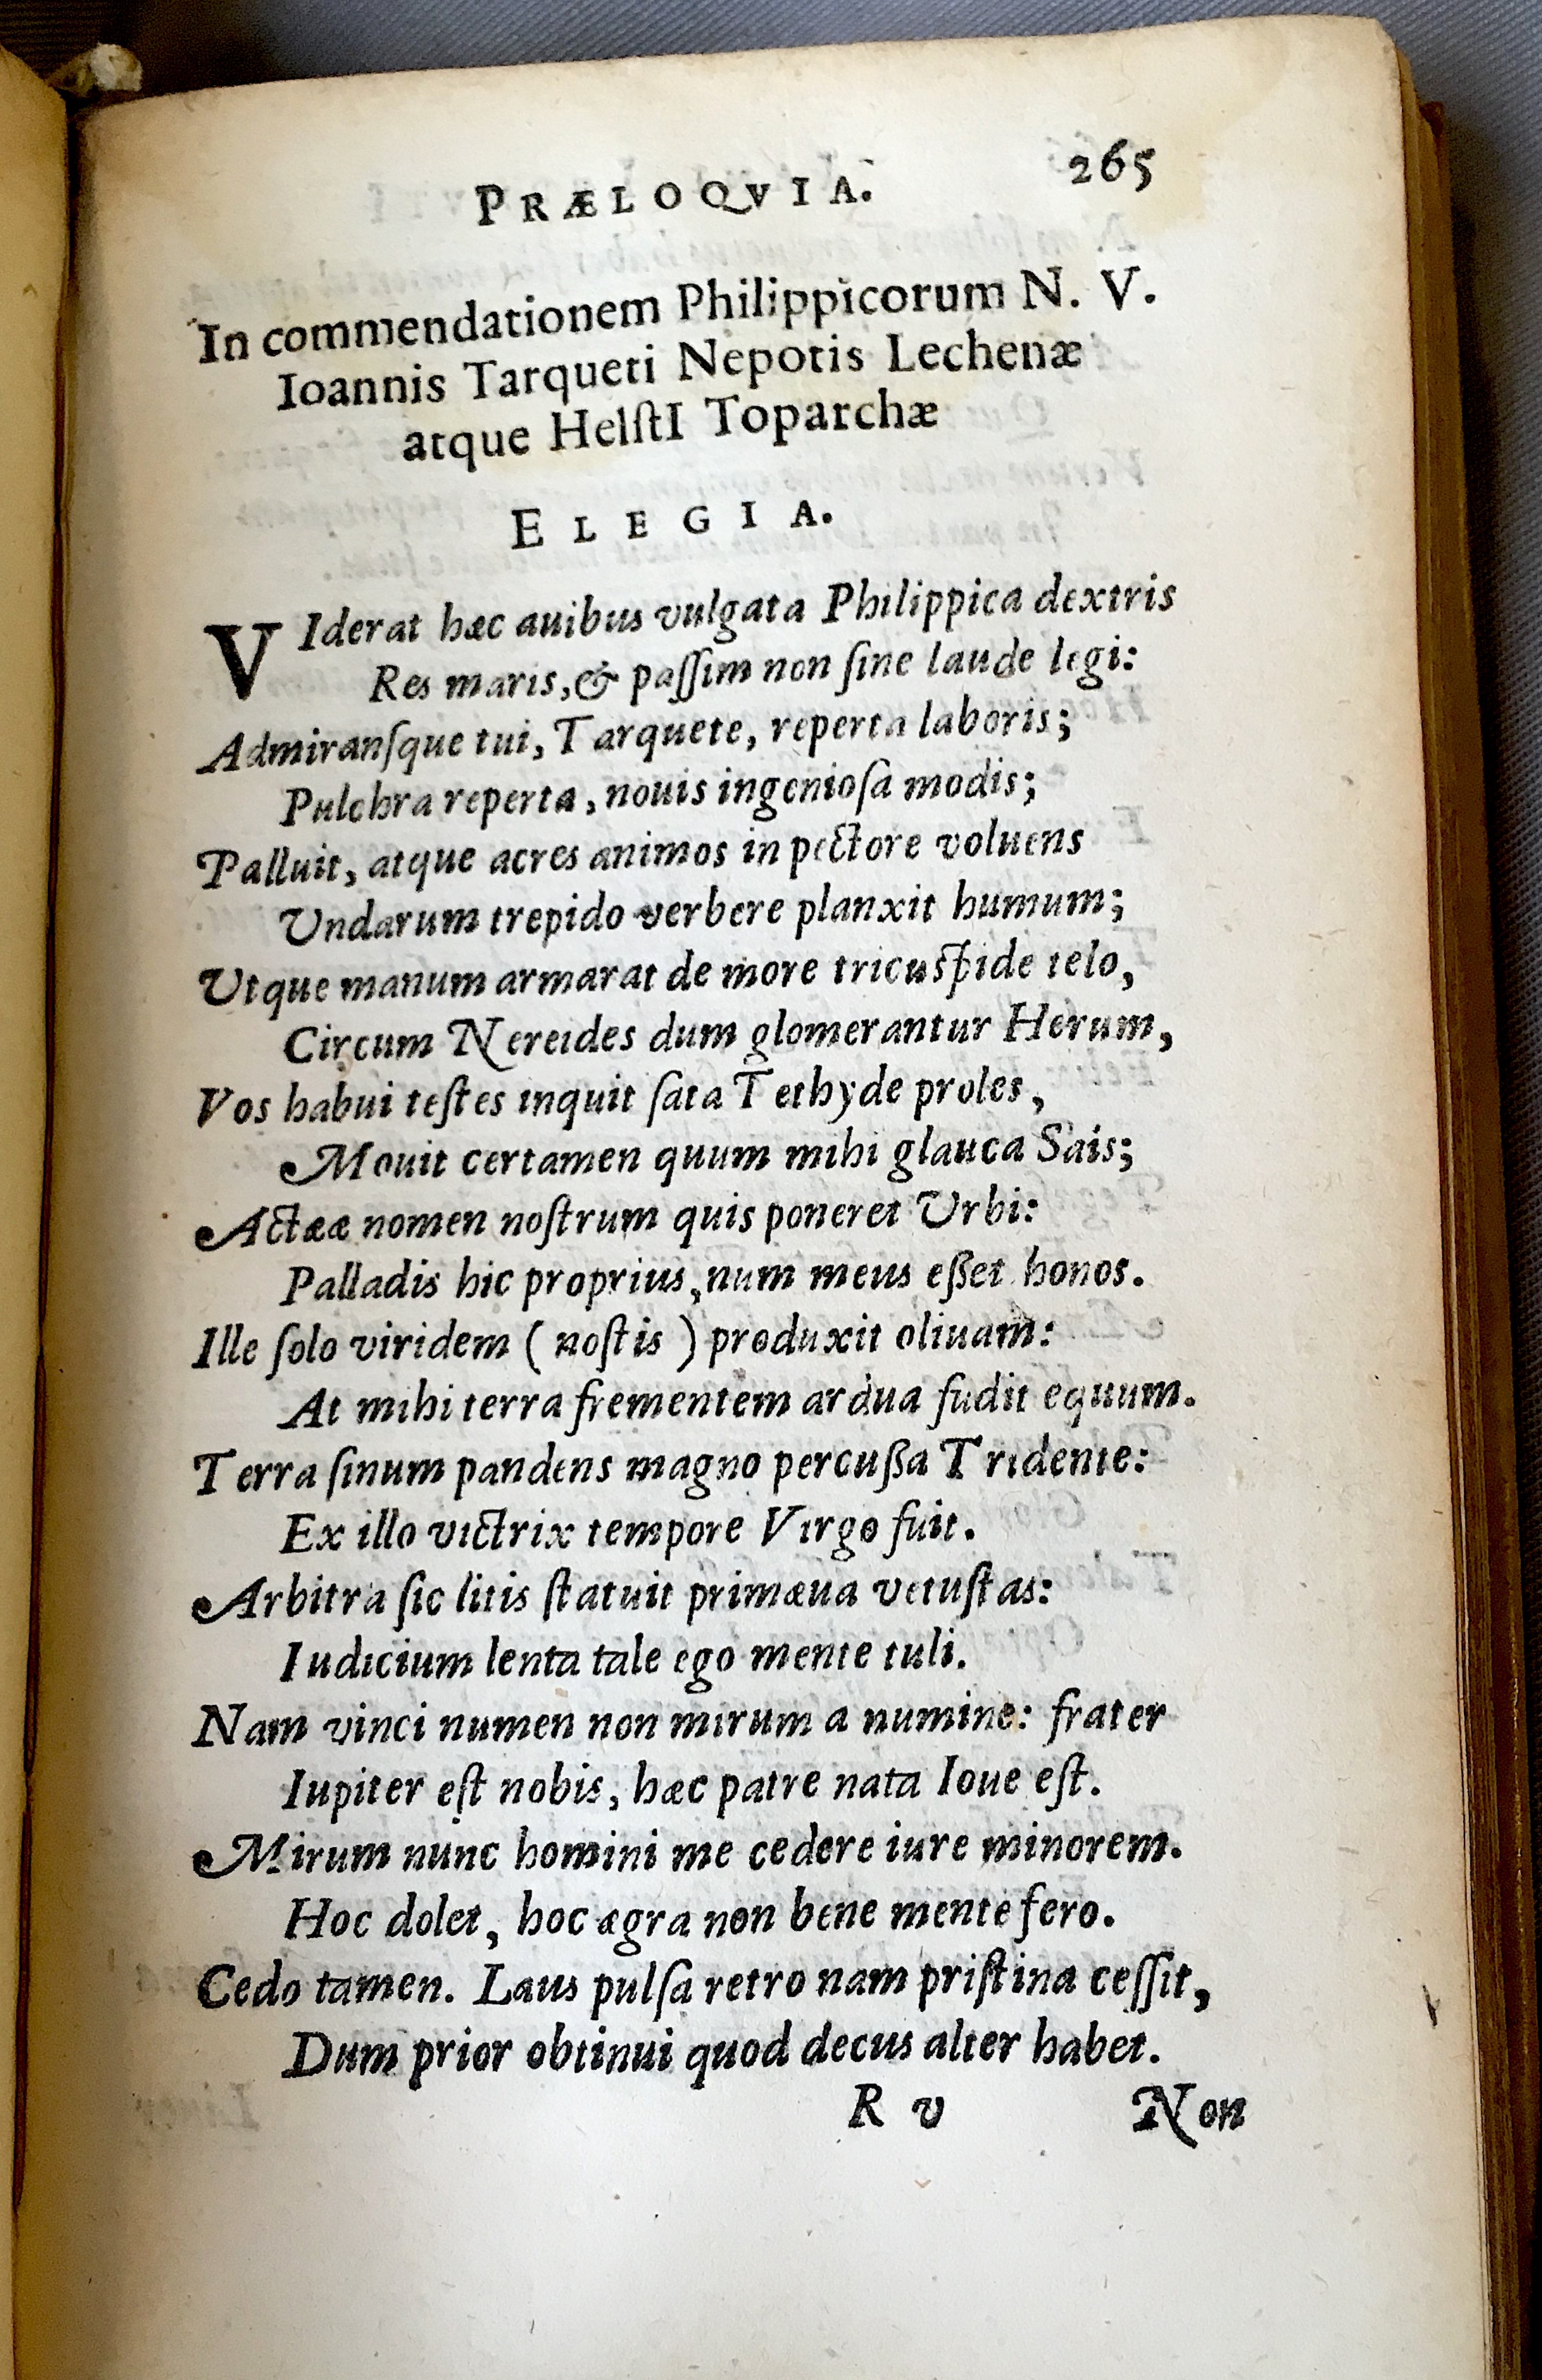 PRÆLOQVIA. 265
In commendationem Philippicorum N. V.
Ioannis Tarqueti Nepotis Lechenæ
atque HelſtI Toparchæ
ELEGIA.
VIderat hæc auibus vulgata Philippica dextris
Res maris, & paſſim non ſine laude legi:
Admiranſque tui, Tarquete, reperta laboris;
Pulchra reperta, nouis ingenioſa modis;
Palluit, atque acres animos in pectore voluens
Undarum trepido verbere planxit humum;
Utque manum armarat de more tricuſpide telo,
Circum Nereides dum glomerantur Herum,
Vos habui teſtes inquit ſata Tethyde proles,
Mouit certamen quum mihi glauca Sais;
Actææ nomen noſtrum quis poneret Urbi:
Palladis hic proprius, num meus eßet honos.
Ille ſolo viridem ( noſtis ) produxit oliuam:
At mihi terra frementem ardua fudit equum.
Terra ſinum pandens magno percußa Tridente:
Ex illo victrix tempore Virgo fuit.
Arbitra ſic litis ſtatuit primæua vetuſtas:
Iudicium lenta tale ego mente tuli.
Nam vinci numen non mirum a numine: frater
Iupiter eſt nobis, hæc patre nata Ioue eſt.
Mirum nunc homini me cedere iure minorem.
Hoc dolet, hoc ægra non bene mente fero.
Cedo tamen. Laus pulſa retro nam priſtina ceſſit,
Dum prior obtinui quod decus alter habet.
R v Non